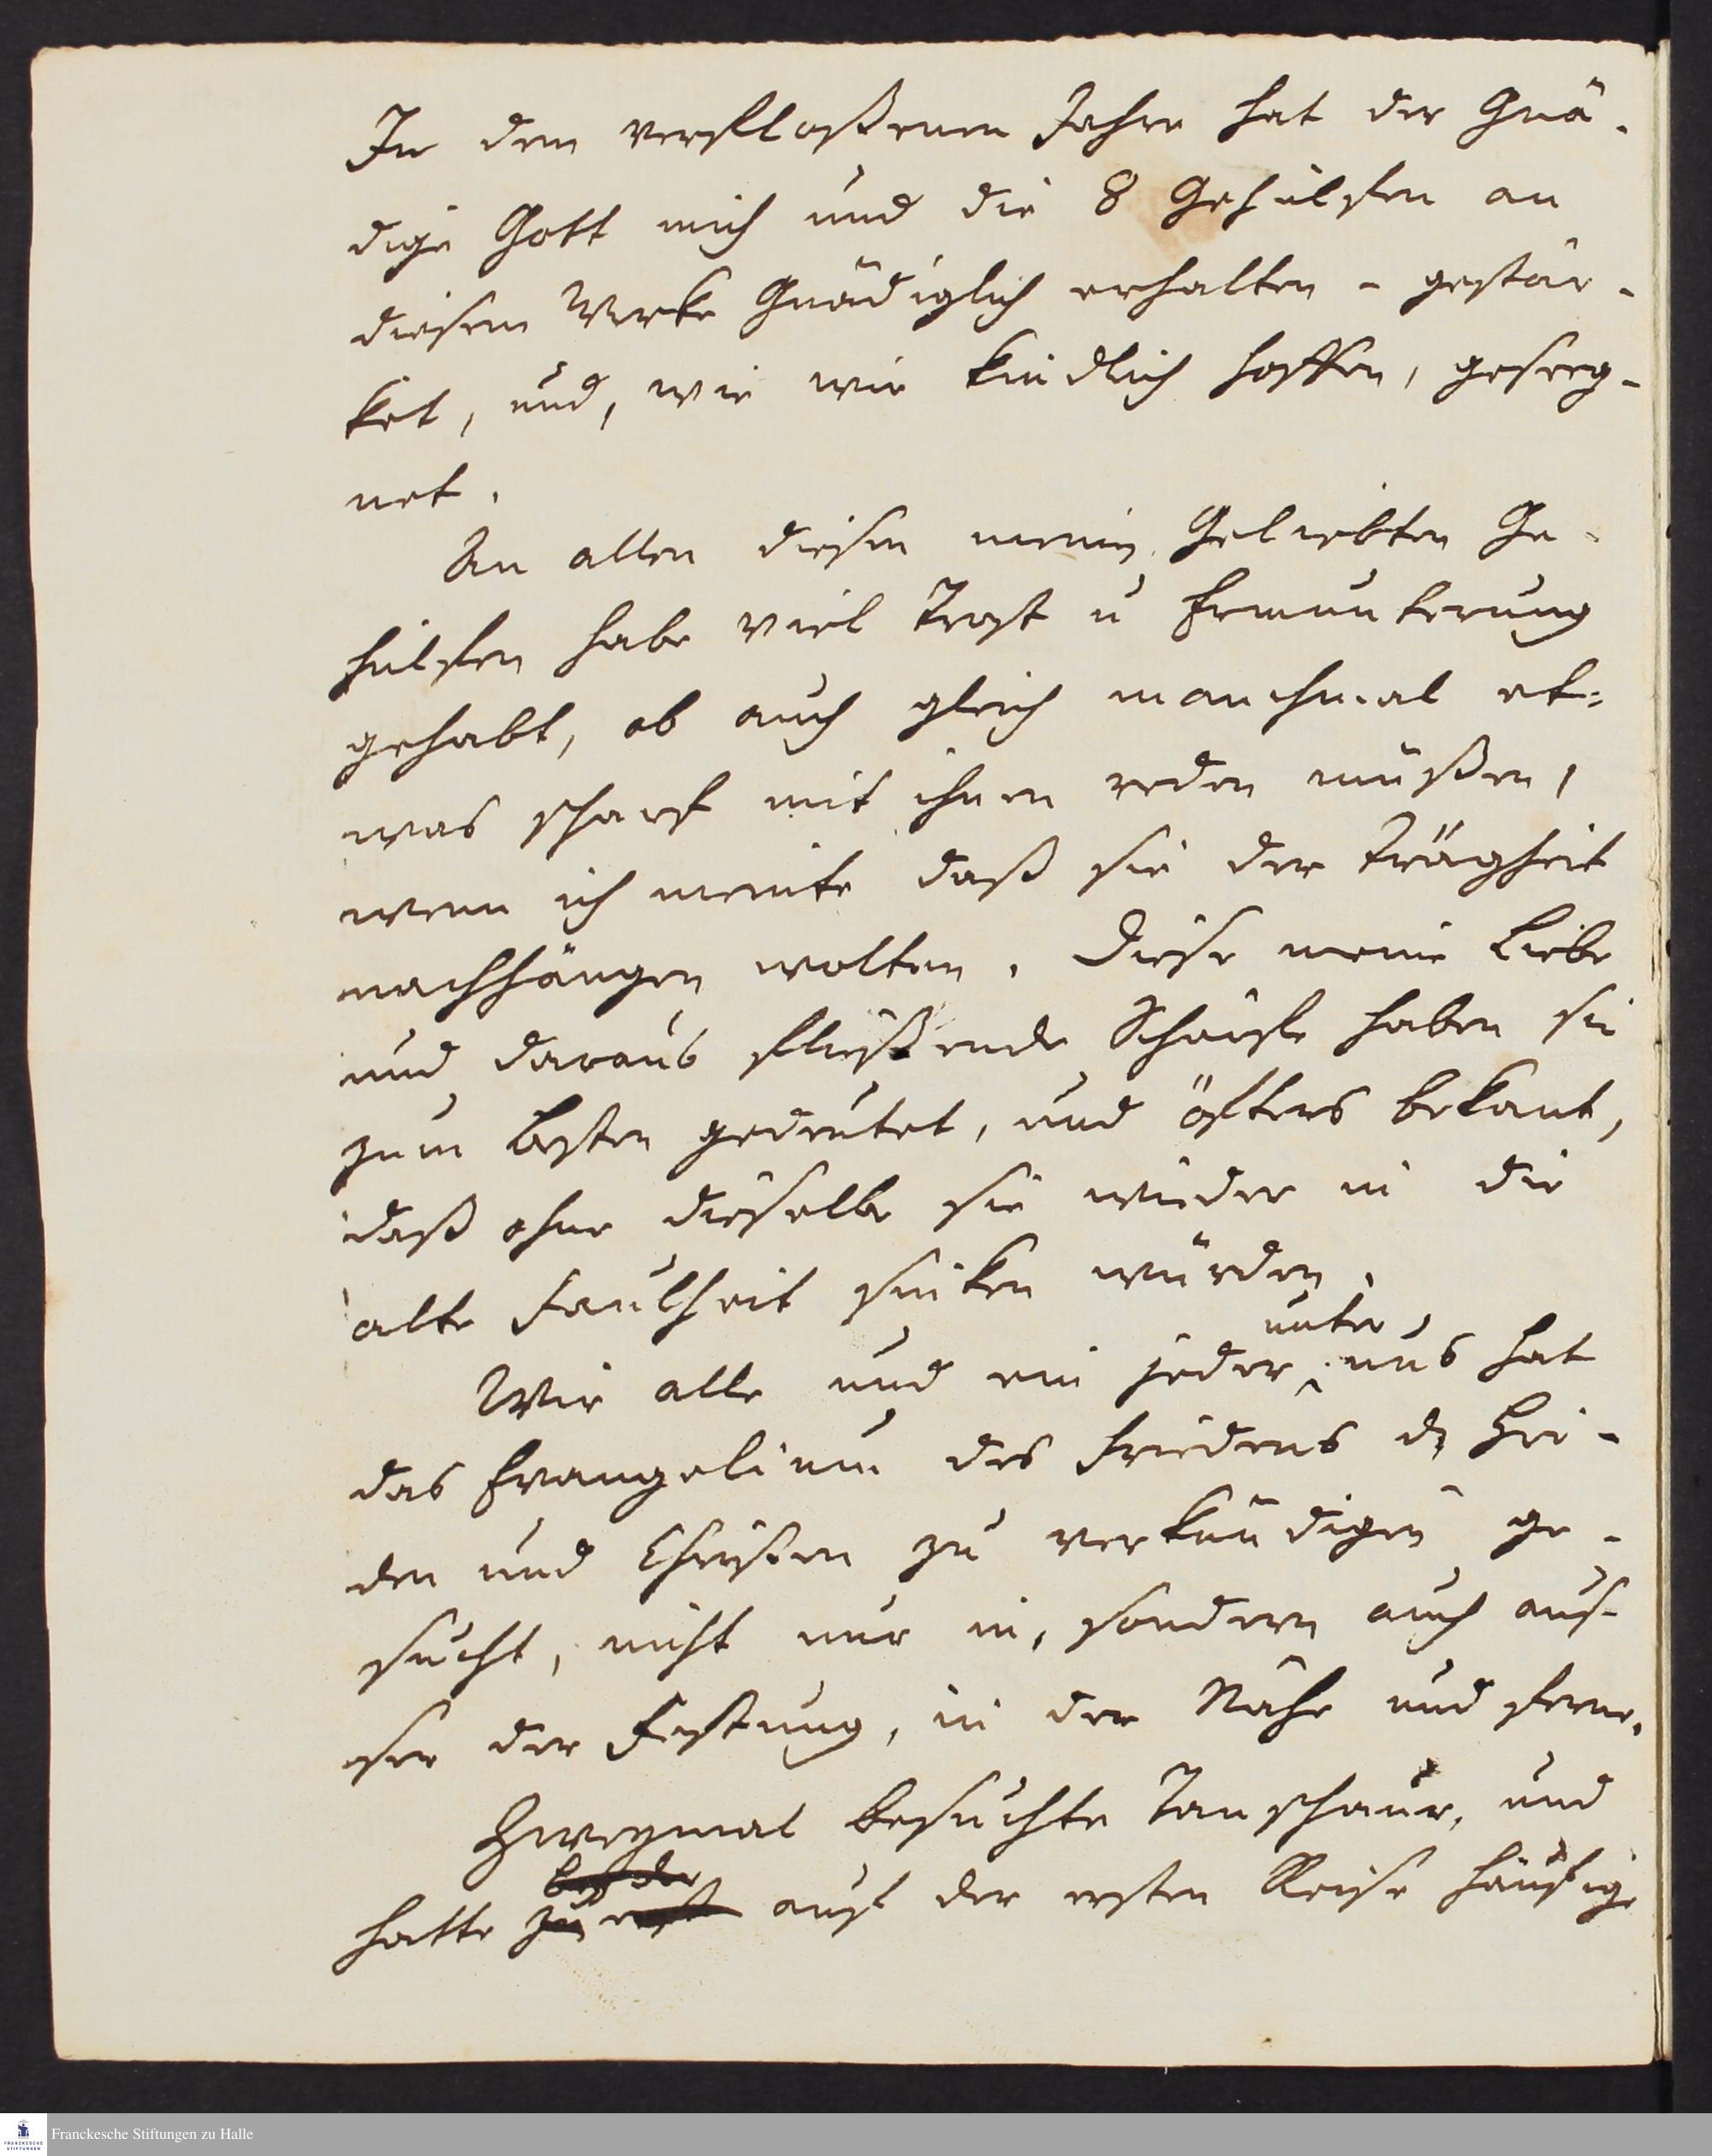 In dem verfloßenen Jahre hat der Gnä-
dige Gott mich und die 8 Gehülfen an
diesem Werke Gnädiglich erhalten - gestär-
ket, und, wie wir kindlich hoffen, geseeg-
net.
An allen diesen meinen Geliebten Ge-
hülfen habe viel Trost u Ermunterung
gehabt, ob auch gleich manchmal et-
was scharf mit ihnen reden müßen,
wenn ich meinte daß sie der Trägheit
nachhängen wolten. Diese meine Liebe
und daraus fließende Schärfe haben sie
zum Besten gedeutet, und öfters bekant,
daß ohne dieselbe sie wieder in die
alte Faulheit sinken würden.
unter
Wir alle und ein jeder uns hat
das Evangelium des Friedens den Hei-
den und Christen zu verkündigen ge-
sucht, nicht nur in, sondern auch aus-
ser der Festung, in der Nähe und ferne.
Zweymal besuchte Tanschaur, und
bey der
hatte zu erst auf der ersten Reise häufige
Franckesche Stiftungen zu Halle
FRANCKESCHE
STIFTUNGEN